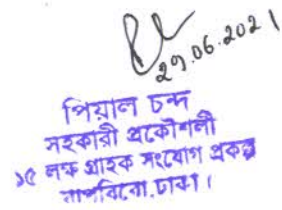 29.06.2021
পিয়াল চন্দ
সহকারী প্রকৌশলী
১৫ লক্ষ গ্রাহক সংযোগ প্রকল্প
বাপবিবো, ঢাকা।